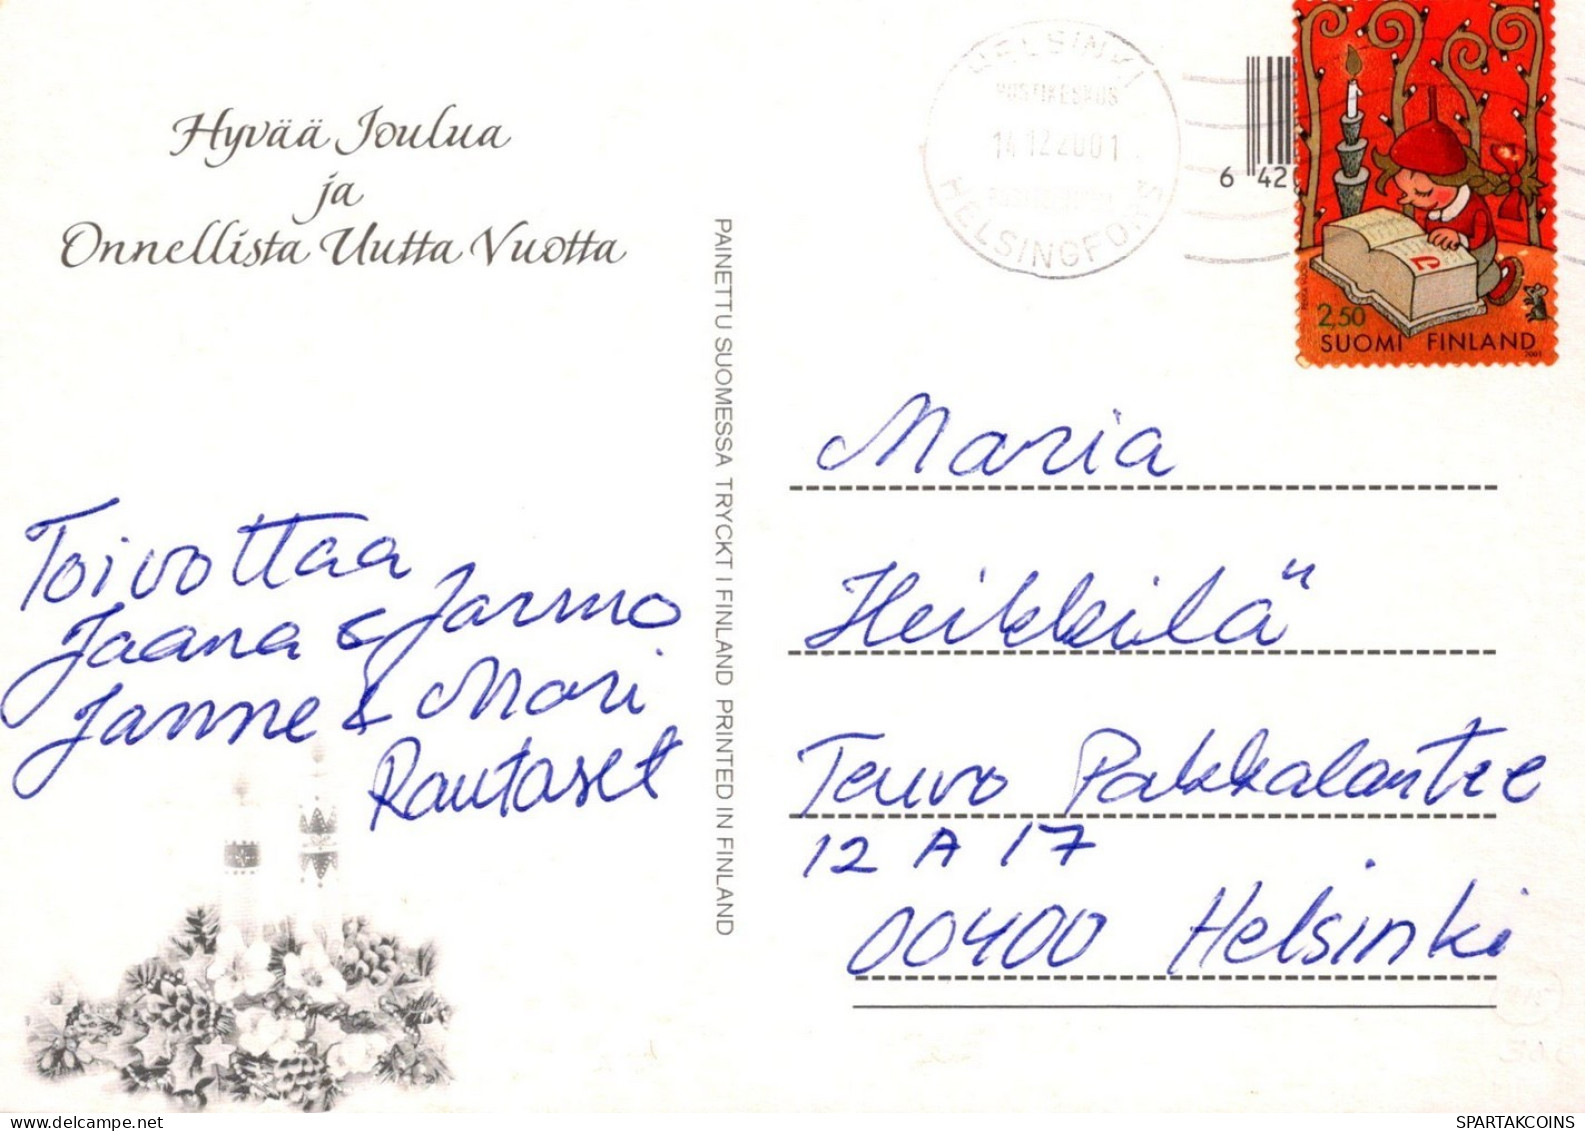 Hyvää Joulua
ja
Onnellista Uutta Vuotta
Toivottaa
Jaana & Jarmo
Janne & Mari
Rautaset
PAINETTU SUOMESSA TRYCKT I FINLAND PRINTED IN FINLAND
HELSINKI
POSTIKESKUS
14.12.2001
HELSINGFORS
6 42
2,50
SUOMI FINLAND
2001
Maria
Heikkilä
Teuvo Pakkalantie
12 A 17
00400 Helsinki
SPARTAKCOINS